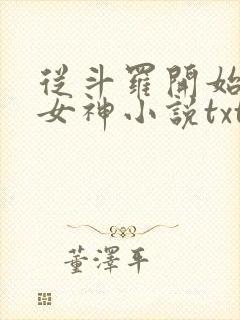 從斗羅開始
女神小說txt
董澤平